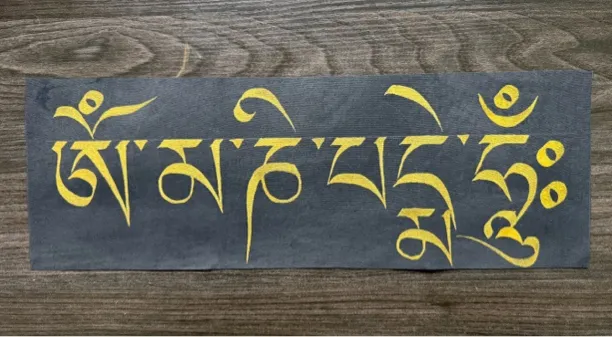 ཨོཾ་མ་ཎི་པདྨེ་ཧཱུྃཿ